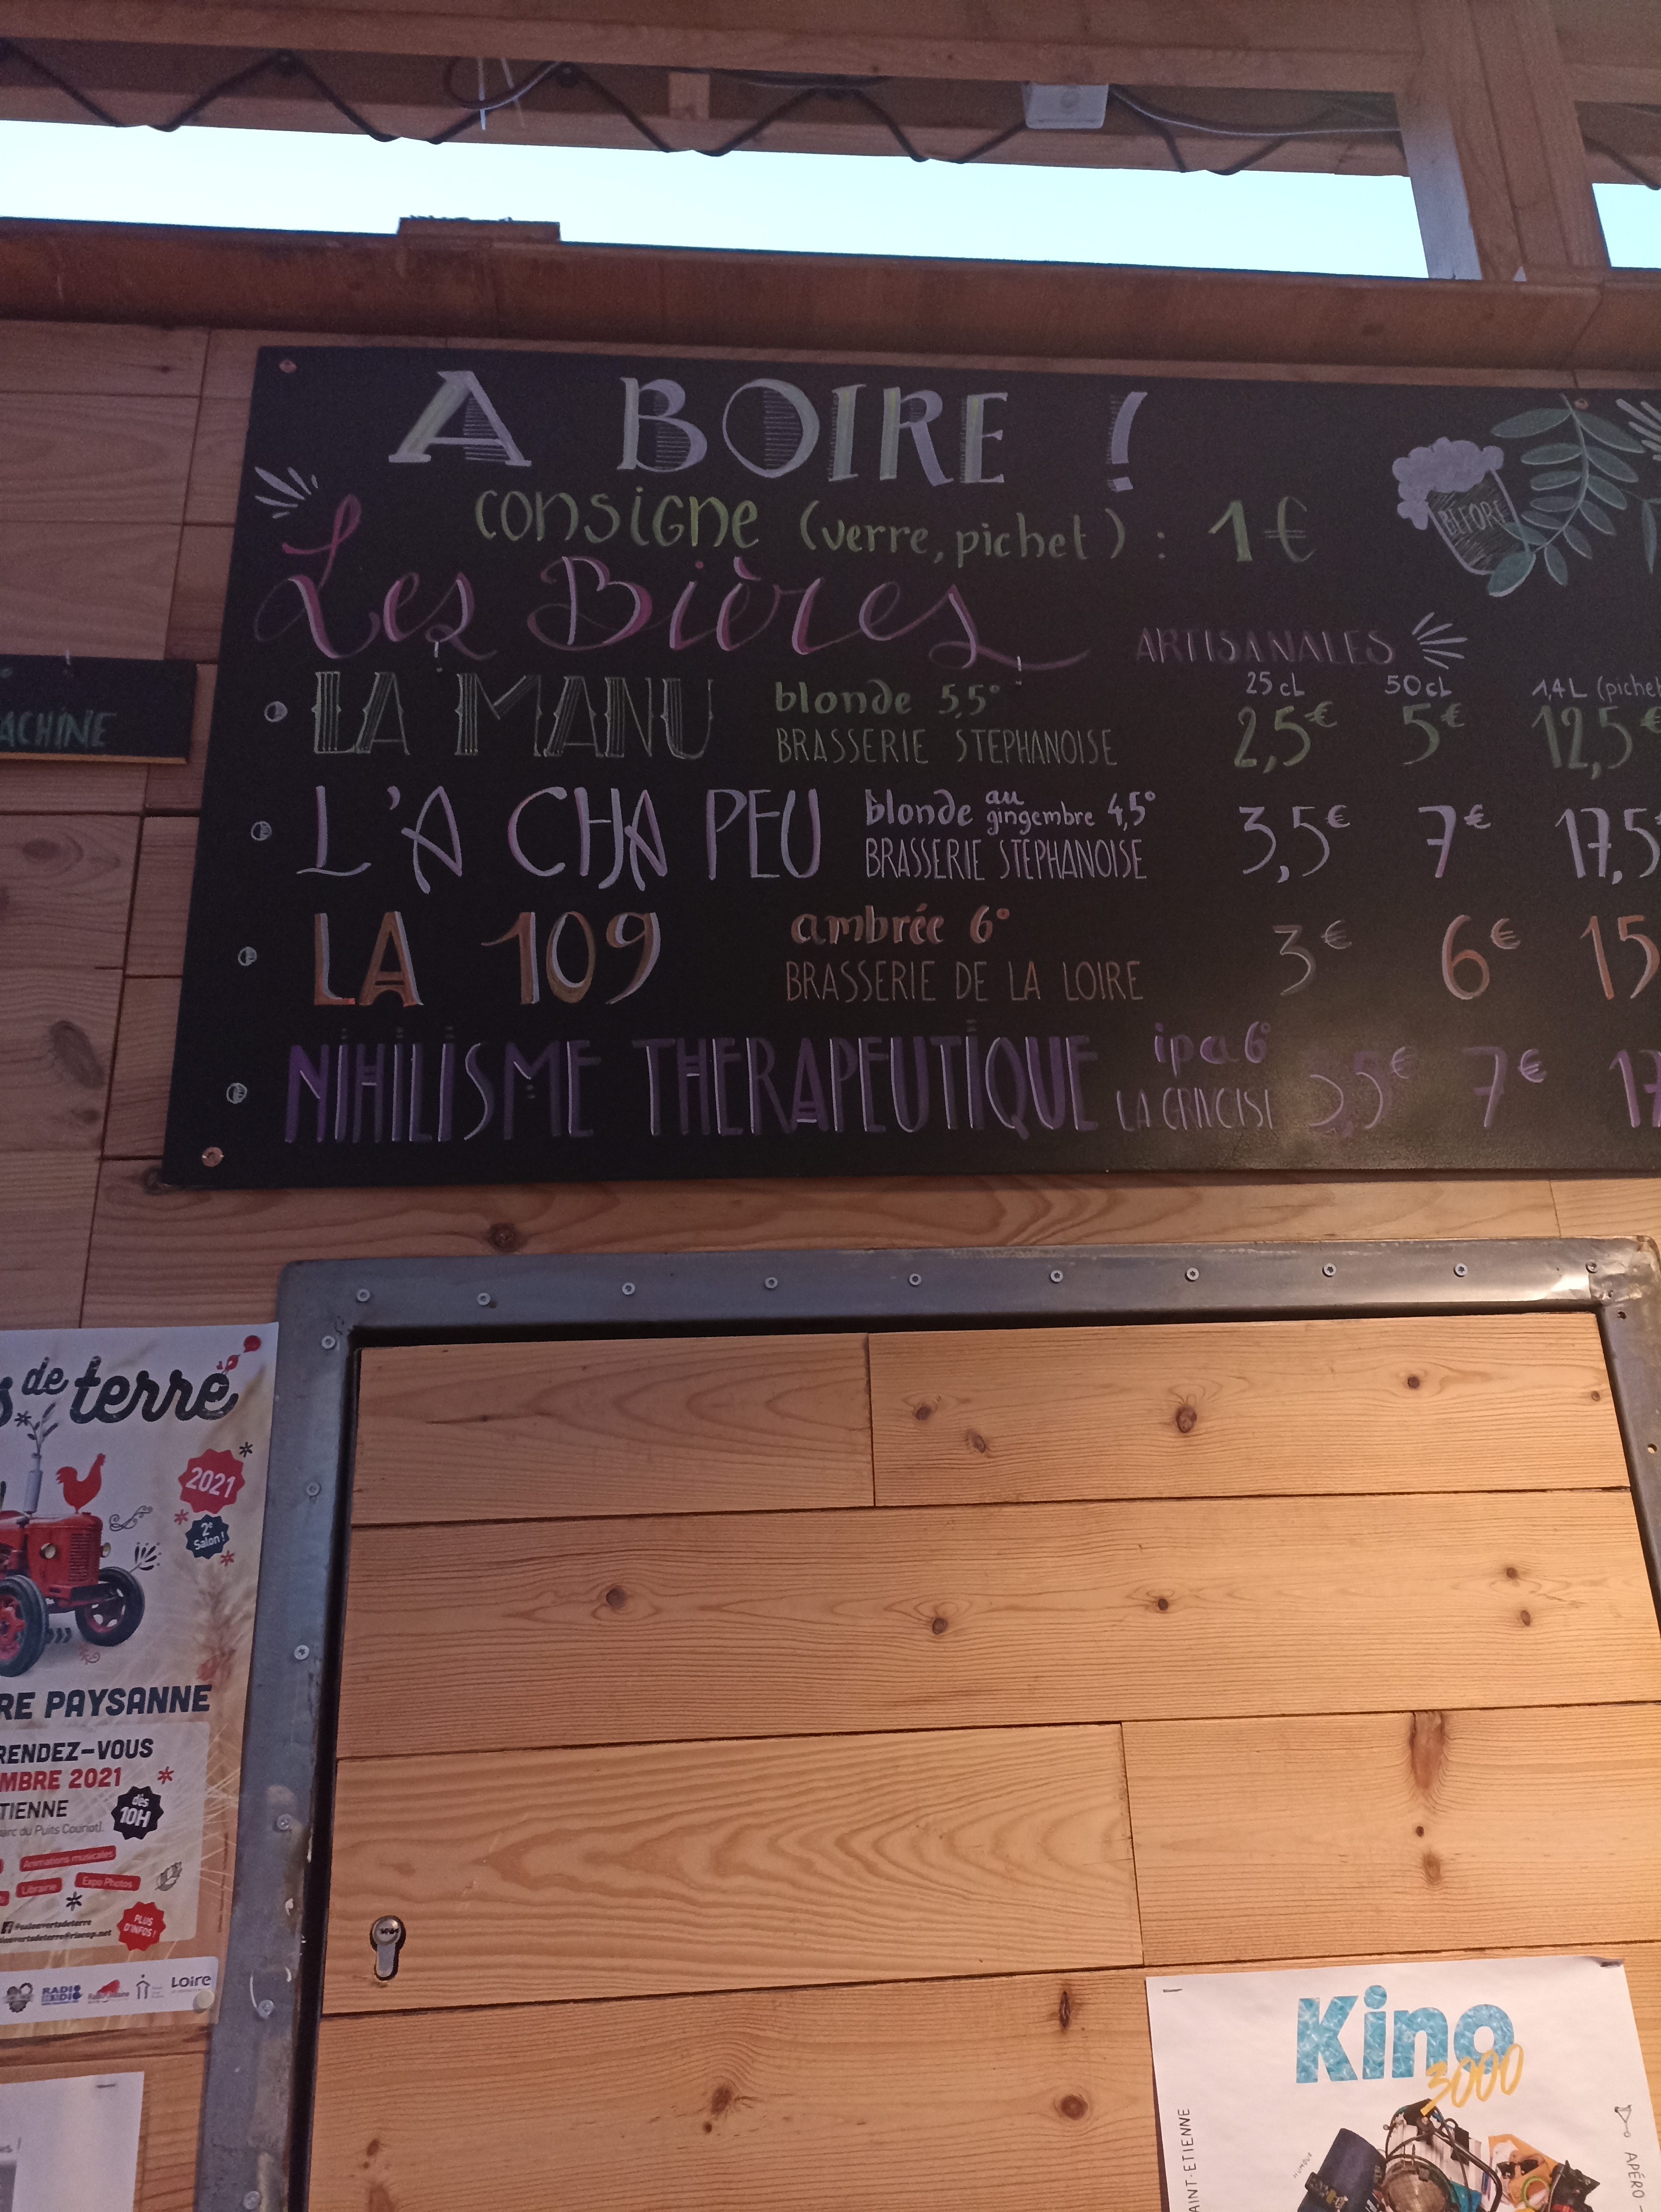 A BOIRE !
consigne (verre, pichet) : 1€
BEFORE
Les Bières ARTISANALES
25 cL 50 cL 1,4 L (pichet
LA MANU blonde 5,5° 2,5€ 5€ 12,5€
BRASSERIE STEPHANOISE
L'A CHA PEU blonde au gingembre 4,5° 3,5€ 7€ 17,5
BRASSERIE STEPHANOISE
LA 109 ambrée 6° 3€ 6€ 15
BRASSERIE DE LA LOIRE
NIHILISME THERAPEUTIQUE ipa 6° 3,5€ 7€ 17
LA
ACHINE
s de terre
2021
2e
Salon !
RE PAYSANNE
RENDEZ-VOUS
MBRE 2021
TIENNE
dès
10H
arc du Puits Couriot).
Animations musicales
Librairie
Expo Photos
PLUS
D'INFOS !
Loire
Kino
3000
AINT-ETIENNE
APÉRO -